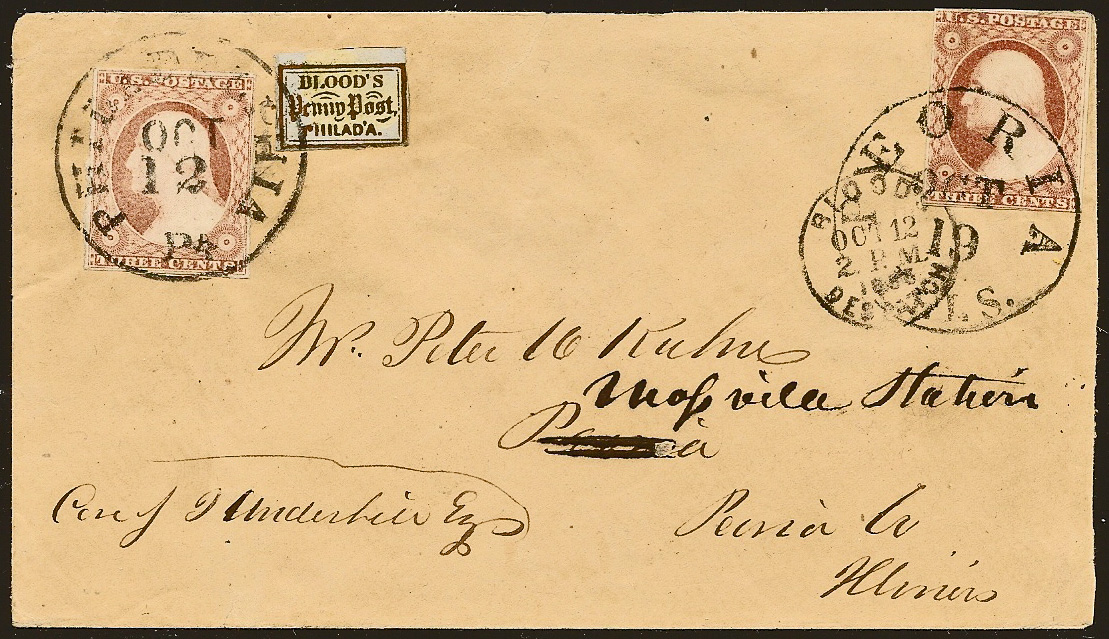 U.S. POSTAGE
THREE CENTS
PHILADELPHIA
OCT
12
PA
BLOOD'S
Penny Post,
PHILAD'A.
U.S. POSTAGE
THREE CENTS
PEORIA
OCT
19
ILS.
BLOOD'S
OCT 12
2 P.M.
DESPATCH
Mr. Peter Kuhn
Mossville Station
Peoria
Care of Underhill Esq
Peoria Co
Illinois